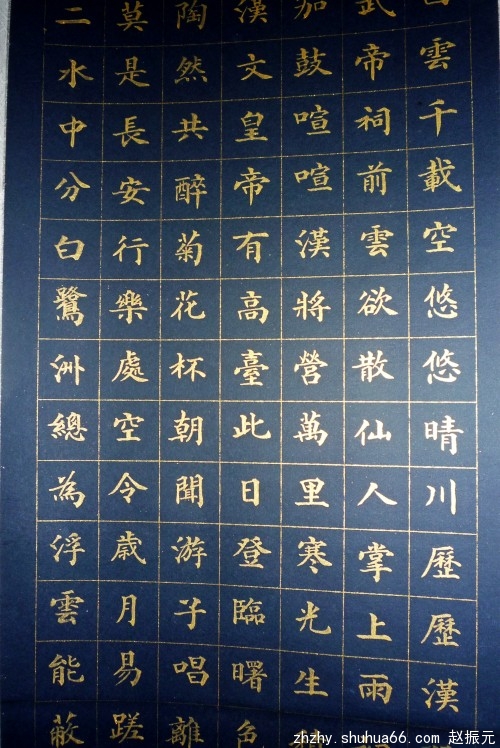 雲千載空悠悠晴川歷歷漢
武帝祠前雲欲散仙人掌上雨
鼓喧喧漢將營萬里寒光生
漢文皇帝有高臺此日登臨曙色
陶然共醉菊花杯朝聞游子唱離
莫是長安行樂處空令歲月易蹉
二水中分白鷺洲總為浮雲能蔽
zhzhy.shuhua66.com 赵振元